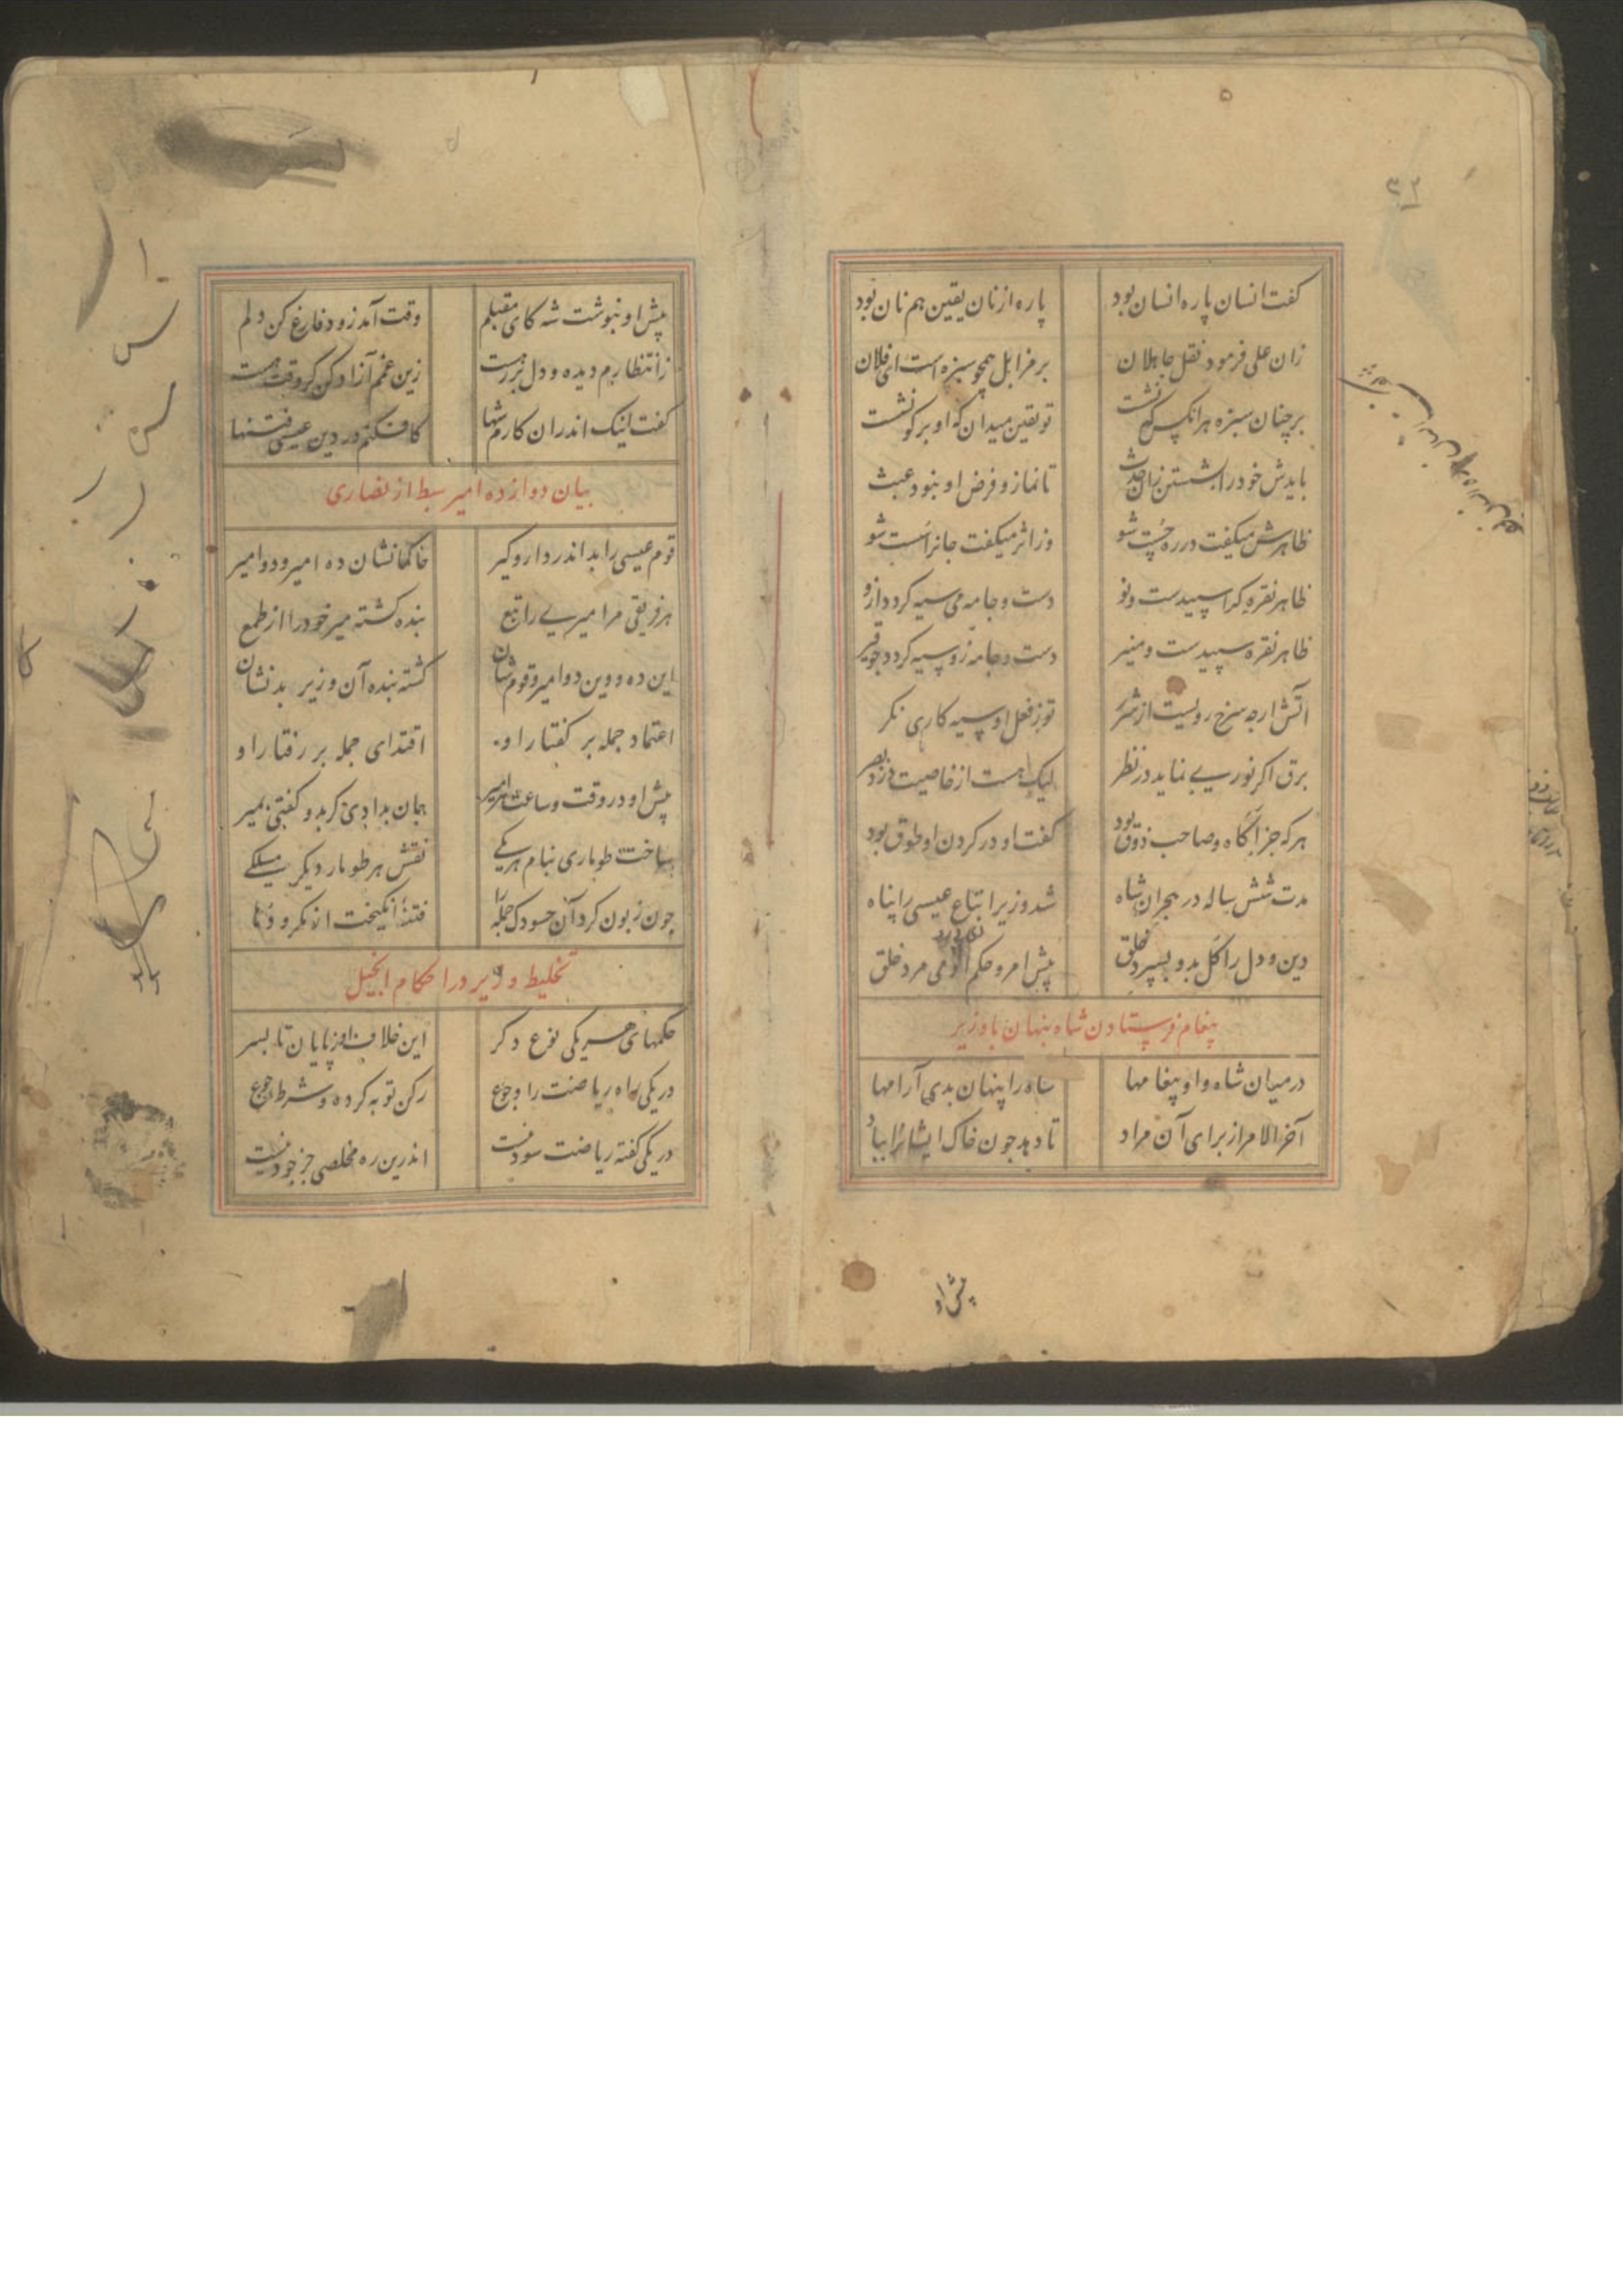 کفت انسان پاره انسان بود پاره از نان یقین هم نان بود
زان علی فرمود نقل جاهلان بر مزابل همچو سبزه است ای فلان
بر چنان سبزه هر انکس کو نشست تو یقین میدان که او بر کو نشست
بایدش خود را بشستن زان حدث تا نماز و فرض او نبود عبث
ظاهرش میکفت در ره چست شو وز اثر میکفت جانرا سست شو
ظاهر نقره کر اسپیدست و نو دست و جامه می سیه کردد ازو
ظاهر نقره سپیدست و منیر دست و جامه زو سیه کردد چو قیر
آتش ارچه سرخ رویست از شرر تو ز فعل او سیه کاری نکر
برق اکر نوری نماید در نظر لیک هست از خاصیت دزد بصر
هر که جز آکاه و صاحب ذوق بود کفت او در کردن او طوق بود
مدت شش ساله در هجران شاه شد وزیر اتباع عیسی را پناه
دین و دل را کل بدو بسپرد خلق پیش امر و حکم او می مرد خلق
پیغام فرستادن شاه پنهان با وزیر
درمیان شاه و او پیغامها شاه را پنهان بدی آرامها
آخر الامر از برای آن مراد تا دهد چون خاک ایشانرا بباد
پیش او
پیش او بنوشت شه کای مقبلم وقت آمد زود فارغ کن دلم
زانتظارم دیده و دل بر رهست زین غمم آزاد کن کر وقت هست
کفت اینک اندران کارم شها کافکنم در دین عیسی فتنها
بیان دوازده امیر سبط از نصاری
قوم عیسی را بد اندر دار و کیر حاکمانشان ده امیر و دو امیر
هر فریقی مر امیری را تبع بنده کشته میر خود را از طمع
این ده و وین دو امیر و قومشان کشته بنده آن وزیر بد نشان
اعتماد جمله بر کفتار او اقتدای جمله بر رفتار او
پیش او در وقت و ساعت هر امیر جان بدادی کر بدو کفتی بمیر
چون زبون کرد آن حسودک جمله را فتنهٔ انکیخت از مکر و دها
ساخت طوماری بنام هر یکی نقش هر طومار دیکر مسلکی
تخلیط وزیر در احکام انجیل
حکمهای هر یکی نوع دکر این خلاف آن ز پایان تا بسر
در یکی راه ریاضت را و جوع رکن توبه کرده و شرط رجوع
در یکی کفته ریاضت سود نیست اندرین ره مخلصی جز جود نیست